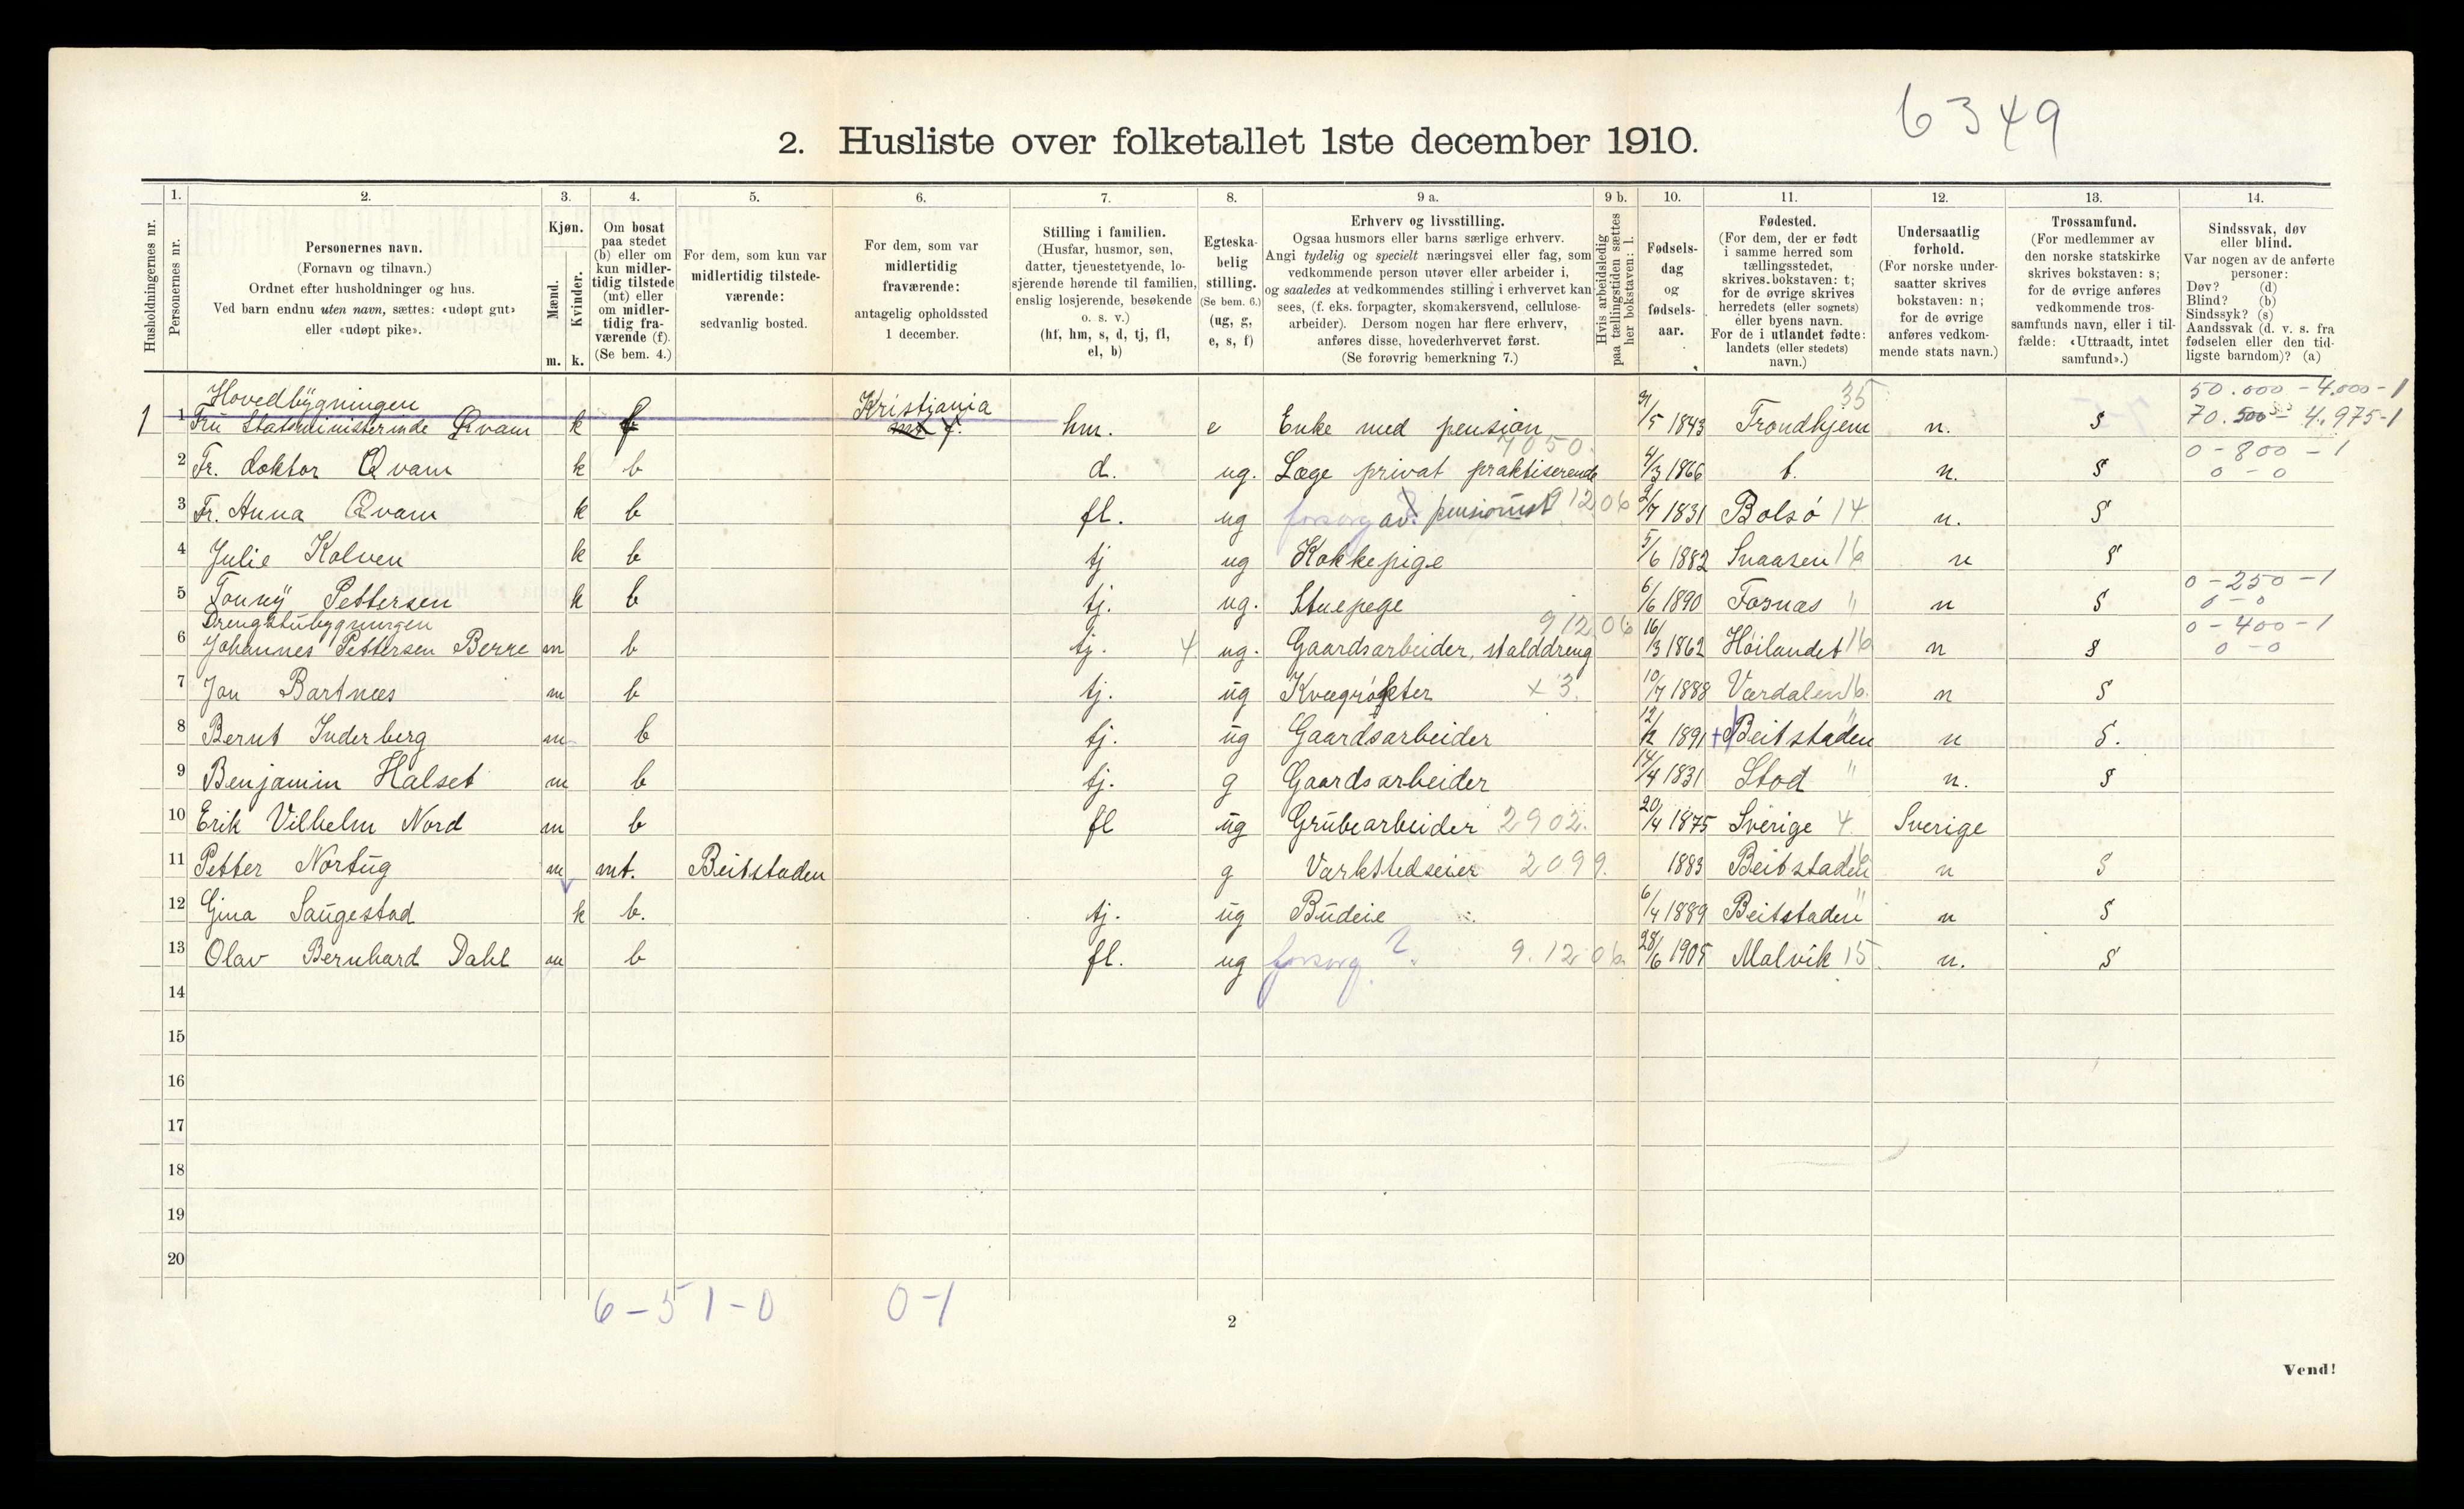 6349
2. Husliste over folketallet 1ste december 1910.
Husholdningernes nr.
1.
Personernes nr.
2.
Personernes navn.
(Fornavn og tilnavn.)
Ordnet efter husholdninger og hus.
Ved barn endnu uten navn, sættes: «udøpt gut»
eller «udøpt pike».
3.
Kjøn.
Mænd.
Kvinder.
m. k.
4.
Om bosat
paa stedet
(b) eller om
kun midler-
tidig tilstede
(mt) eller
om midler-
tidig fra-
værende (f).
(Se bem. 4.)
5.
For dem, som kun var
midlertidig tilstede-
værende:
sedvanlig bosted.
6.
For dem, som var
midlertidig
fraværende:
antagelig opholdssted
1 december.
7.
Stilling i familien.
(Husfar, husmor, søn,
datter, tjenestetyende, lo-
sjerende hørende til familien,
enslig losjerende, besøkende
o. s. v.)
(hf, hm, s, d, tj, fl,
el, b)
8.
Egteska-
belig
stilling.
(Se bem. 6.)
(ug, g,
e, s, f)
9 a.
Erhverv og livsstilling.
Ogsaa husmors eller barns særlige erhverv.
Angi tydelig og specielt næringsvei eller fag, som
vedkommende person utøver eller arbeider i,
og saaledes at vedkommendes stilling i erhvervet kan
sees, (f. eks. forpagter, skomakersvend, cellulose-
arbeider). Dersom nogen har flere erhverv,
anføres disse, hovederhvervet først.
(Se forøvrig bemerkning 7.)
9 b.
Hvis arbeidsledig
paa tællingstiden sættes
her bokstaven: l.
10.
Fødsels-
dag
og
fødsels-
aar.
11.
Fødested.
(For dem, der er født
i samme herred som
tællingsstedet,
skrives bokstaven: t;
for de øvrige skrives
herredets (eller sognets)
eller byens navn.
For de i utlandet fødte:
landets (eller stedets)
navn.)
12.
Undersaatlig
forhold.
(For norske under-
saatter skrives
bokstaven: n;
for de øvrige
anføres vedkom-
mende stats navn.)
13.
Trossamfund.
(For medlemmer av
den norske statskirke
skrives bokstaven: s;
for de øvrige anføres
vedkommende tros-
samfunds navn, eller i til-
fælde: «Uttraadt, intet
samfund».)
14.
Sindssvak, døv
eller blind.
Var nogen av de anførte
personer:
Døv? (d)
Blind? (b)
Sindssyk? (s)
Aandssvak (d. v. s. fra
fødselen eller den tid-
ligste barndom)? (a)
Hovedbygningen Kristiania 35 50.000 - 4.000 - 1
1 1 Fru Statsministerinde Qvam k f hm. e Enke med pension 31/5 1843 Trondhjem n. s 70.500 - 4.975-1
7050. 0 - 800 - 1
2 Fr. doktor Qvam k b d. ug. Læge privat praktiserende 4/3 1866 t. n. s 0 - 0
3 Fr. Anna Qvam k b fl. ug forsorg av pensionist 91206 2/7 1831 Bolsö 14 n. s
4 Julie Kolven k b tj ug Kokkepige 5/6 1882 Snaasen 16 n s
0 - 250 - 1
5 Tonny Pettersen k b tj. ug. Stuepege 6/6 1890 Fosnas " n s 0 - 0
Drengstubygningen 91206 0 - 400 - 1
6 Johannes Pettersen Berre m b tj. 4 ug. Gaardsarbeider, stalddreng 16/3 1862 Höilandet 16 n s 0 - 0
7 Jon Bartnes m b tj. ug Kvægrögter x 3. 10/7 1888 Værdalen 16. n s
8 Bernt Inderberg m b tj. ug Gaardsarbeider 12/2 1891 + Beitstaden " n s.
9 Benjamin Halset m b tj. g Gaardsarbeider 14/4 1831 Stod " n. s
10 Erik Vilhelm Nord m b fl ug Grubearbeider 2902. 20/4 1875 Sverige 4 Sverige
11 Petter Nortug m mt. Beitstaden g Værkstedseier 2099. 1883 Beitstaden n s
12 Gina Saugestad k b. tj. ug Budeie 6/4 1889 Beitstaden " n s
13 Olav Bernhard Dahl m b fl. ug forsorg ? 9.1206 28/6 1905 Malvik 15 n. s
14
15
16
17
18
19
20
6 - 5 1 - 0 0 - 1
2
Vend!